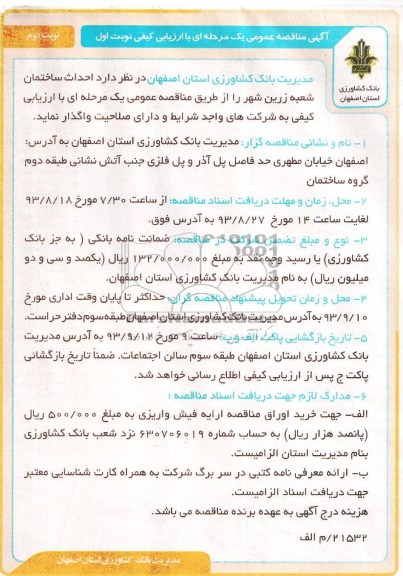 آگهی مناقصه عمومی یک مرحله ای با ارزیابی کیفی نوبت اول
نوبت دوم
بانک کشاورزی
استان اصفهان
مدیریت بانک کشاورزی استان اصفهان در نظر دارد احداث ساختمان
شعبه زرین شهر را از طریق مناقصه عمومی یک مرحله ای با ارزیابی
کیفی به شرکت های واجد شرایط و دارای صلاحیت واگذار نماید.
۱- نام و نشانی مناقصه گزار: مدیریت بانک کشاورزی استان اصفهان به آدرس:
اصفهان خیابان مطهری حد فاصل پل آذر و پل فلزی جنب آتش نشانی طبقه دوم
گروه ساختمان
۲- محل، زمان و مهلت دریافت اسناد مناقصه: از ساعت ۷/۳۰ مورخ ۹۳/۸/۱۸
لغایت ساعت ۱۴ مورخ ۹۳/۸/۲۷ به آدرس فوق.
۳- نوع و مبلغ تضمین شرکت در مناقصه: ضمانت نامه بانکی ( به جز بانک
کشاورزی) یا رسید وجه نقد به مبلغ ۱۳۲/۰۰۰/۰۰۰ ریال (یکصد و سی و دو
میلیون ریال) به نام مدیریت بانک کشاورزی استان اصفهان.
۴- محل و زمان تحویل پیشنهاد مناقصه گران: حداکثر تا پایان وقت اداری مورخ
۹۳/۹/۱۰ به آدرس مدیریت بانک کشاورزی استان اصفهان طبقه سوم دفتر حراست.
۵- تاریخ بازگشایی پاکت الف و ب: ساعت ۹ مورخ ۹۳/۹/۱۲ به آدرس مدیریت
بانک کشاورزی استان اصفهان طبقه سوم سالن اجتماعات. ضمناً تاریخ بازگشائی
پاکت ج پس از ارزیابی کیفی اطلاع رسانی خواهد شد.
۶- مدارک لازم جهت دریافت اسناد مناقصه :
الف- جهت خرید اوراق مناقصه ارایه فیش واریزی به مبلغ ۵۰۰/۰۰۰ ریال
(پانصد هزار ریال) به حساب شماره ۶۳۰۷۰۶۰۱۹ نزد شعب بانک کشاورزی
بنام مدیریت استان الزامیست.
ب- ارائه معرفی نامه کتبی در سر برگ شرکت به همراه کارت شناسایی معتبر
جهت دریافت اسناد الزامیست.
هزینه درج آگهی به عهده برنده مناقصه می باشد.
۲۱۵۳۲/م الف
مدیریت بانک کشاورزی استان اصفهان